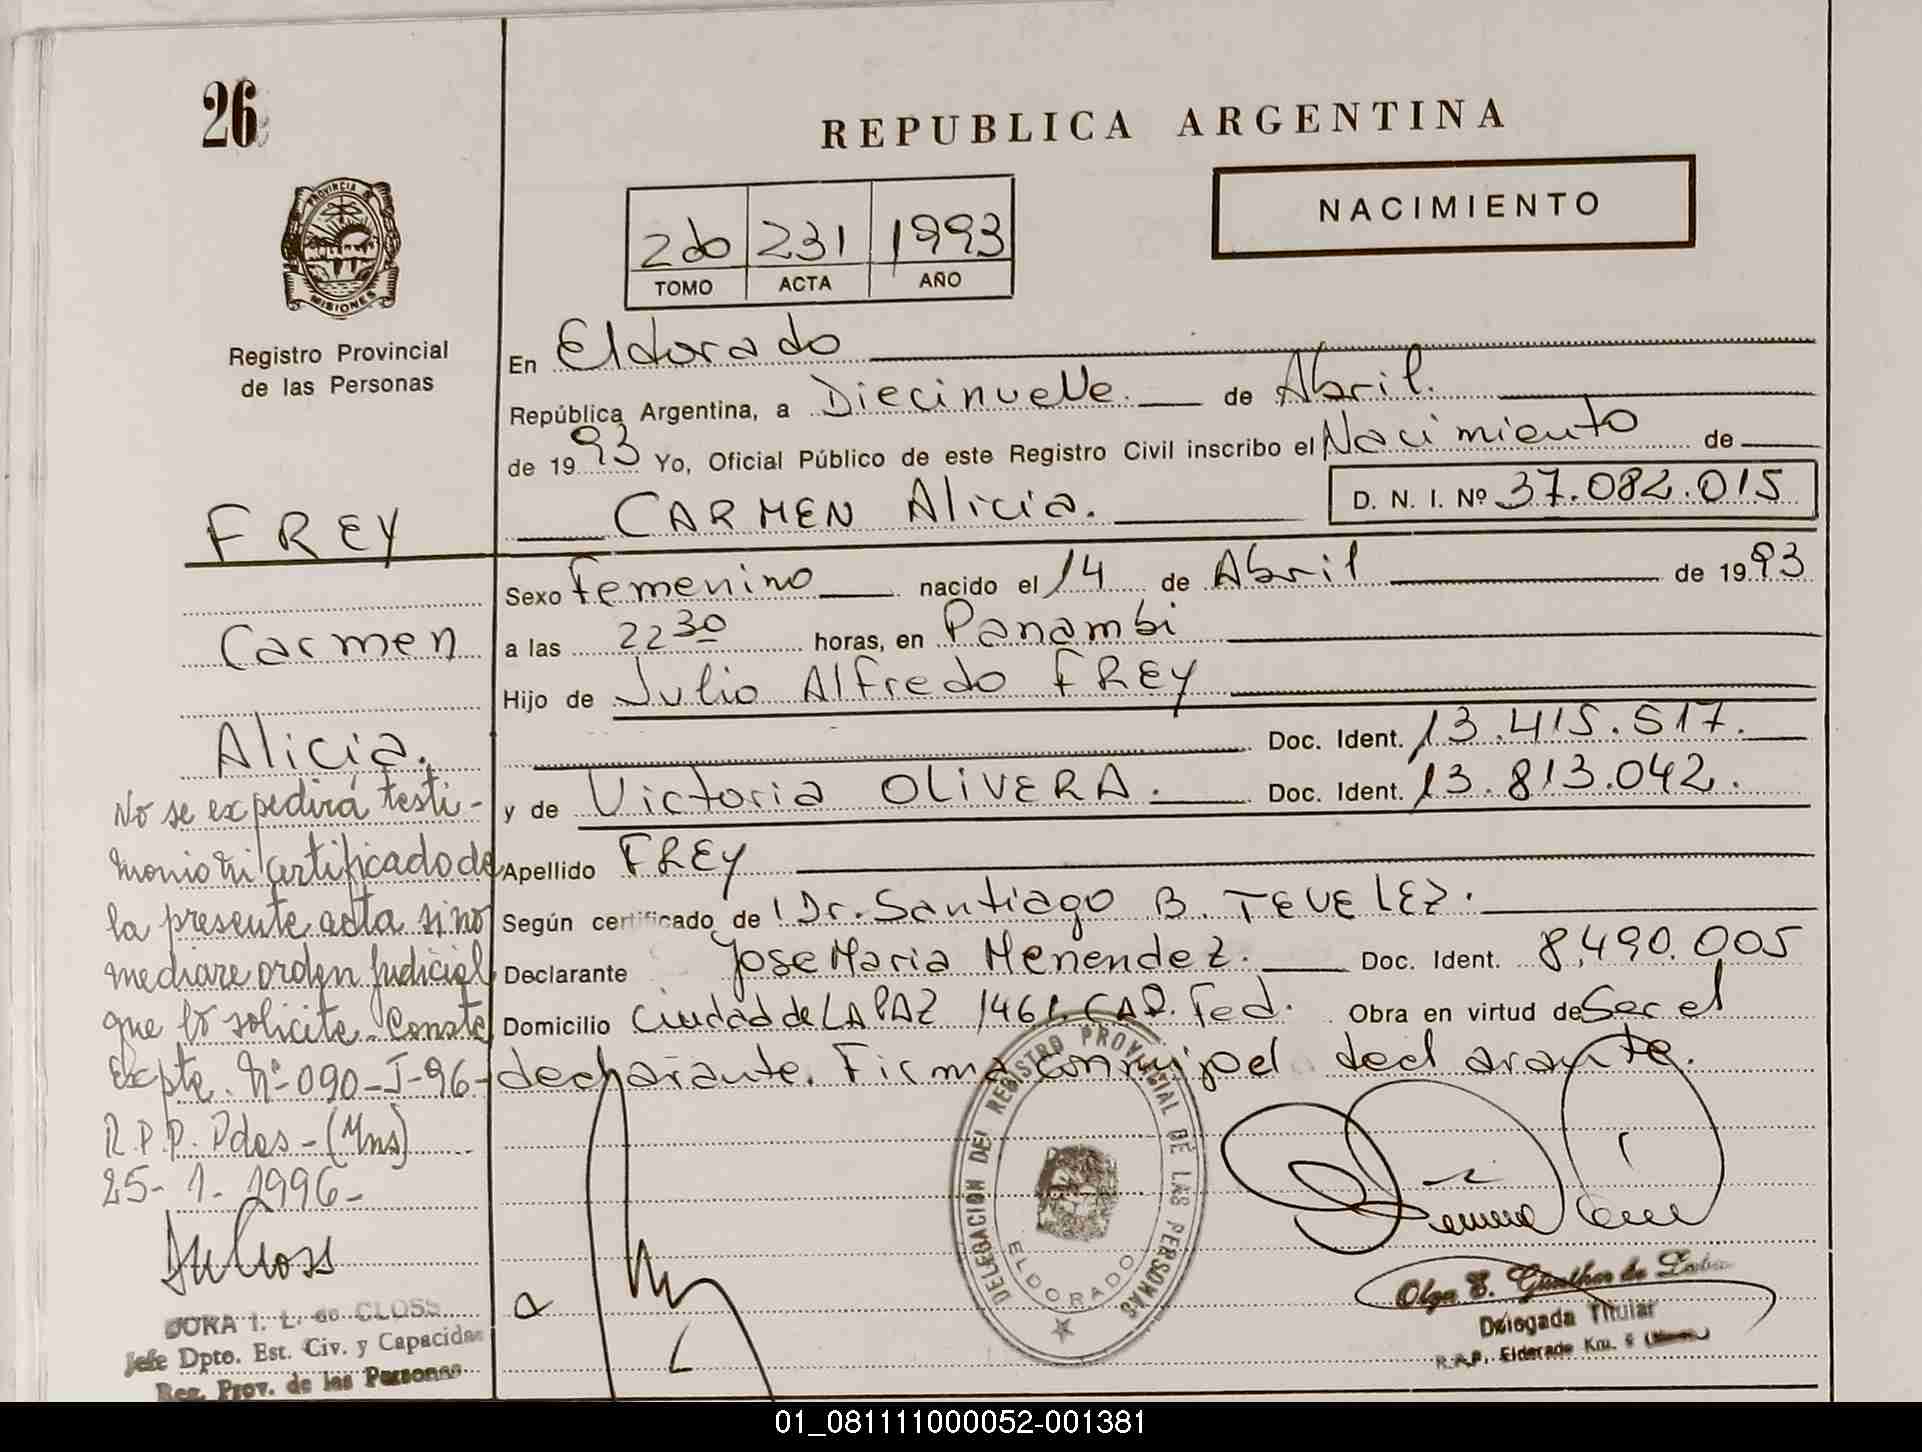 26
REPUBLICA ARGENTINA
PROVINCIA DE
MISIONES
Registro Provincial
de las Personas
2do 231 1993
TOMO ACTA AÑO
NACIMIENTO
En Eldorado
República Argentina, a Diecinueve. de Abril.
de 1993 Yo, Oficial Público de este Registro Civil inscribo el Nacimiento de
CARMEN Alicia. D. N. I. Nº 37.082.015
Sexo Femenino nacido el 14 de Abril de 1993
a las 22 30 horas, en Panambi
Hijo de Julio Alfredo FREY
Doc. Ident. 13.415.517.
y de Victoria OLIVERA. Doc. Ident. 13.813.042.
Apellido FREY
Según certificado de Dr. Santiago B. TEVELEZ.
Declarante Jose Maria Menendez. Doc. Ident. 8,490.005
Domicilio Ciudad de LA PAZ 1461. CAP. Fed. Obra en virtud de Ser el
declarante. Firma conmigo el declarante.
FREY
Carmen
Alicia.
No se expedirá testi-
monio ni certificado de
la presente acta si no
mediare orden judicial
que lo solicite. Conste
Expte. Nº-090-I-96-
R.P.P. Pdas-(Mns)
25-1-1996-
DORA I. L. de CLOSS
Jefe Dpto. Est. Civ. y Capacidad
Reg. Prov. de las Personas
DELEGACION DEL REGISTRO PROVINCIAL DE LAS PERSONAS
ELDORADO
Olga E. Günther de
Delegada Titular
R.P.P. Eldorado Km. 9
01_081111000052-001381